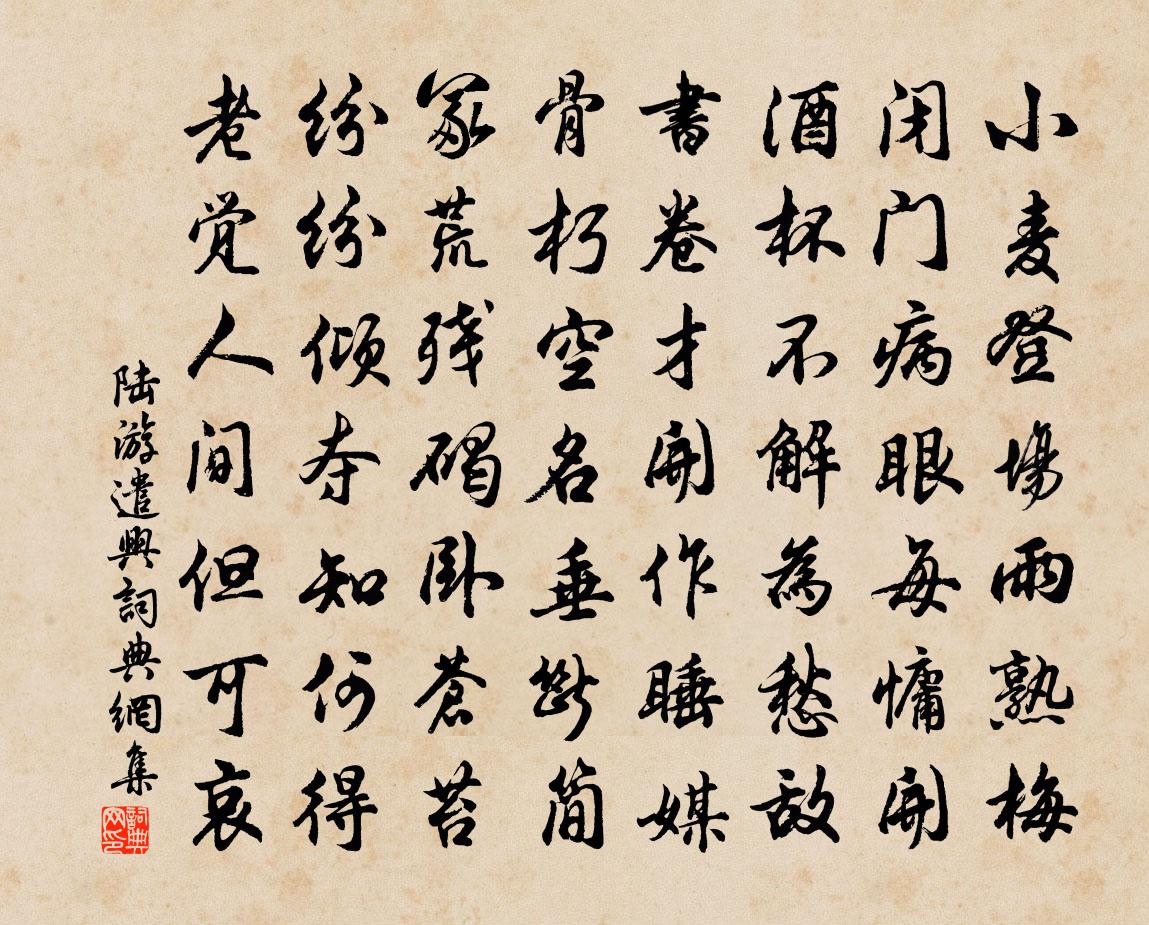 小麦登場雨熟梅
闭门病眼每慵開
酒杯不解為愁敌
書卷才開作睡媒
骨朽空名垂斷简
冢荒残碣卧苍苔
纷纷倾夺知何得
老觉人间但可哀
陆游遣興詞典網集
詞典网印